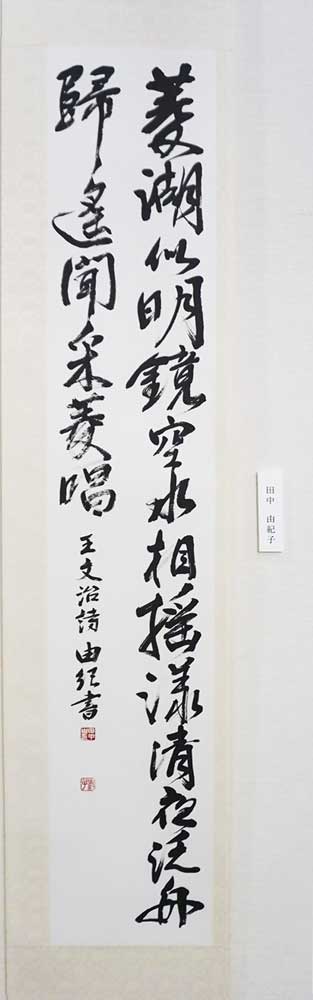 菱湖似明鏡空水相搖漾清夜泛舟
歸遙聞采菱唱
王文治詩 由紀書
田中 由紀子